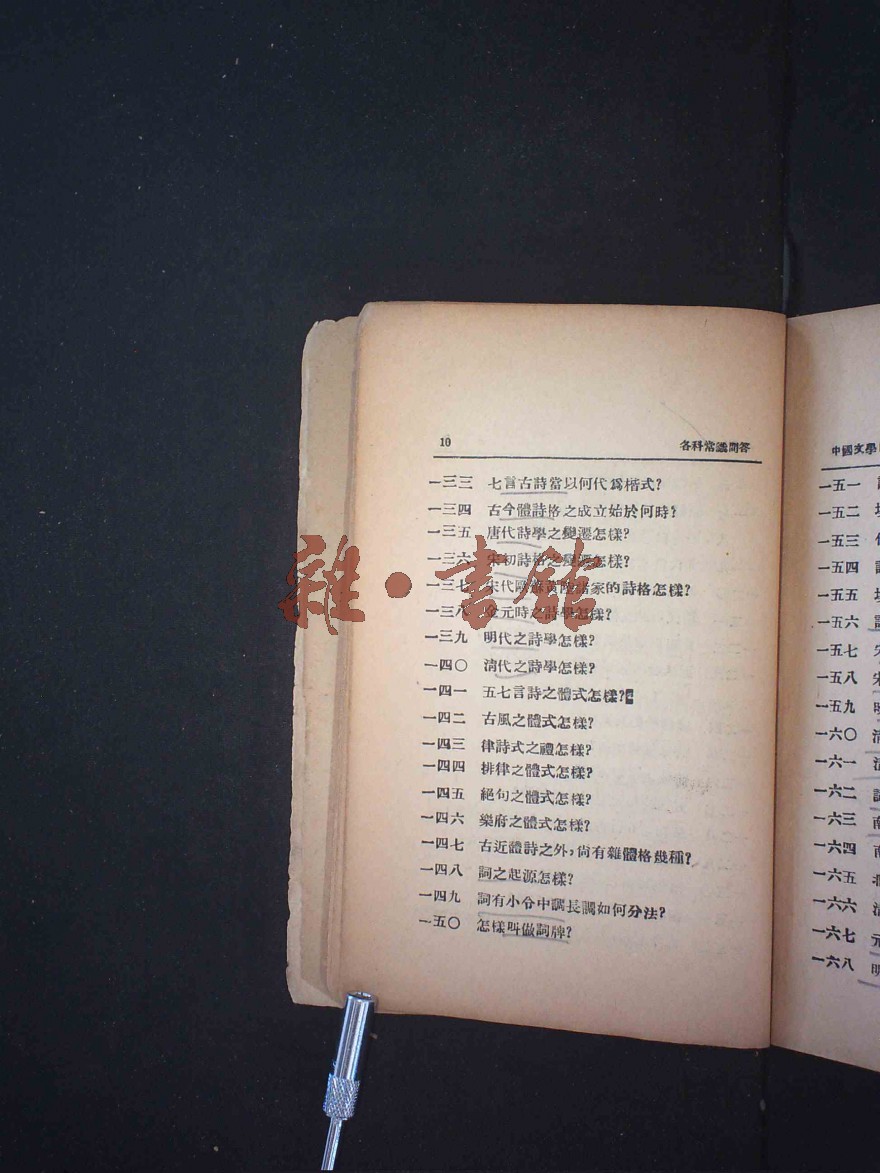 10 各科常識問答
一三三 七言古詩當以何代爲楷式?
一三四 古今體詩格之成立始於何時?
一三五 唐代詩學之變遷怎樣?
一三六 宋初詩格之變遷怎樣?
一三七 宋代歐蘇黃陸諸家的詩格怎樣?
一三八 金元時之詩學怎樣?
一三九 明代之詩學怎樣?
一四〇 清代之詩學怎樣?
一四一 五七言詩之體式怎樣?
一四二 古風之體式怎樣?
一四三 律詩式之禮怎樣?
一四四 排律之體式怎樣?
一四五 絕句之體式怎樣?
一四六 樂府之體式怎樣?
一四七 古近體詩之外,尙有雜體格幾種?
一四八 詞之起源怎樣?
一四九 詞有小令中調長調如何分法?
一五〇 怎樣叫做詞牌?
雜·書館
中國文學
一五一
一五二
一五三
一五四
一五五
一五六
一五七
一五八 宋
一五九 明
一六〇 清
一六一 清
一六二
一六三 南
一六四 南
一六五
一六六 清
一六七 元
一六八 明